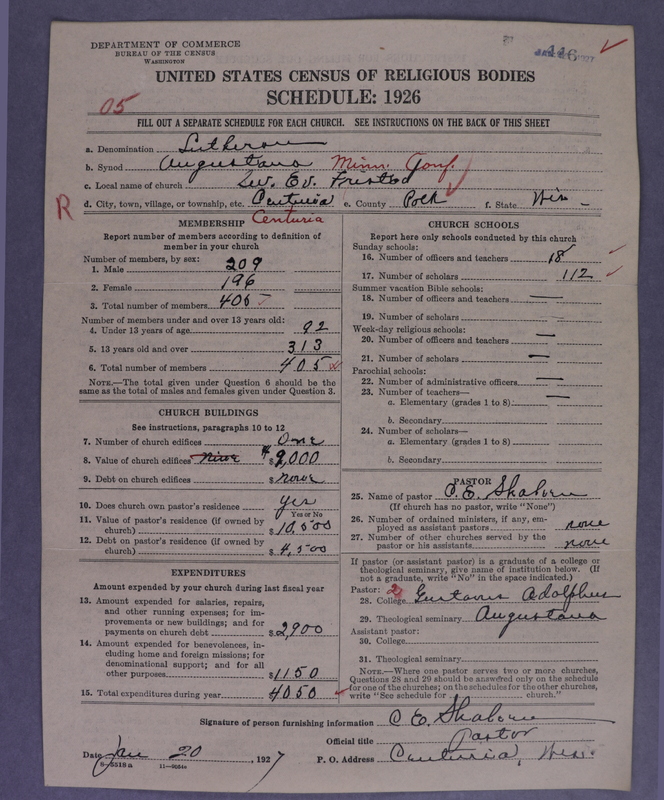 DEPARTMENT OF COMMERCE
BUREAU OF THE CENSUS
WASHINGTON
UNITED STATES CENSUS OF RELIGIOUS BODIES
SCHEDULE: 1926
05
FILL OUT A SEPARATE SCHEDULE FOR EACH CHURCH. SEE INSTRUCTIONS ON THE BACK OF THIS SHEET
a. Denomination Lutheran
b. Synod Augustana Minn. Conf.
c. Local name of church Sw. Ev. Fristad
d. City, town, village, or township, etc. Centuria e. County Polk f. State Wis
R Centuria
MEMBERSHIP
Report number of members according to definition of member in your church
Number of members, by sex:
1. Male 209
2. Female 196
3. Total number of members 405
Number of members under and over 13 years old:
4. Under 13 years of age 92
5. 13 years old and over 313
6. Total number of members 405
NOTE.—The total given under Question 6 should be the same as the total of males and females given under Question 3.
CHURCH BUILDINGS
See instructions, paragraphs 10 to 12
7. Number of church edifices One
8. Value of church edifices $9,000
9. Debt on church edifices $ none
10. Does church own pastor's residence yes
Yes or No
11. Value of pastor's residence (if owned by church) $10,500
12. Debt on pastor's residence (if owned by church) $4,500
EXPENDITURES
Amount expended by your church during last fiscal year
13. Amount expended for salaries, repairs, and other running expenses; for improvements or new buildings; and for payments on church debt $2900
14. Amount expended for benevolences, including home and foreign missions; for denominational support; and for all other purposes $1150
15. Total expenditures during year $4050
CHURCH SCHOOLS
Report here only schools conducted by this church
Sunday schools:
16. Number of officers and teachers 18
17. Number of scholars 112
Summer vacation Bible schools:
18. Number of officers and teachers —
19. Number of scholars
Week-day religious schools:
20. Number of officers and teachers —
21. Number of scholars —
Parochial schools:
22. Number of administrative officers —
23. Number of teachers— —
a. Elementary (grades 1 to 8)
b. Secondary
24. Number of scholars—
a. Elementary (grades 1 to 8)
b. Secondary
PASTOR
25. Name of pastor C. E.
(If church has no pastor, write "None")
26. Number of ordained ministers, if any, employed as assistant pastors none
27. Number of other churches served by the pastor or his assistants none
If pastor (or assistant pastor) is a graduate of a college or theological seminary, give name of institution below. (If not a graduate, write "No" in the space indicated.)
Pastor: 2
28. College Gustavus Adolphus
29. Theological seminary Augustana
Assistant pastor:
30. College
31. Theological seminary
NOTE.—Where one pastor serves two or more churches, Questions 28 and 29 should be answered only on the schedule for one of the churches; on the schedules for the other churches, write "See schedule for church."
Signature of person furnishing information C. E.
Official title Pastor
Date Jan 20, 1927 P. O. Address Centuria, Wis.
8—5518a 11—9664a